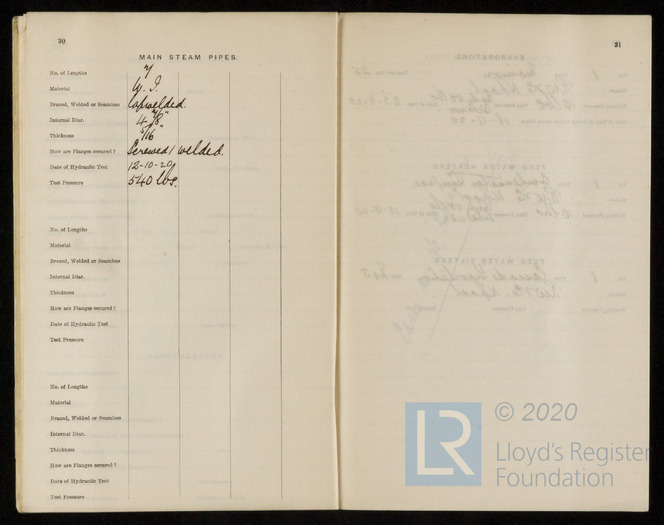 30
MAIN STEAM PIPES.
No. of Lengths 7
Material W. I.
Brazed, Welded or Seamless Lapwelded.
Internal Diar. 4 7/8"
Thickness 5/16"
How are Flanges secured? Screwed / welded.
Date of Hydraulic Test 12-10-20
Test Pressure 540 lbs.
No. of Lengths
Material
Brazed, Welded or Seamless
Internal Diar.
Thickness
How are Flanges secured?
Date of Hydraulic Test
Test Pressure
No. of Lengths
Material
Brazed, Welded or Seamless
Internal Diar.
Thickness
How are Flanges secured?
Date of Hydraulic Test
Test Pressure
31
LR
© 2020
Lloyd's Register
Foundation